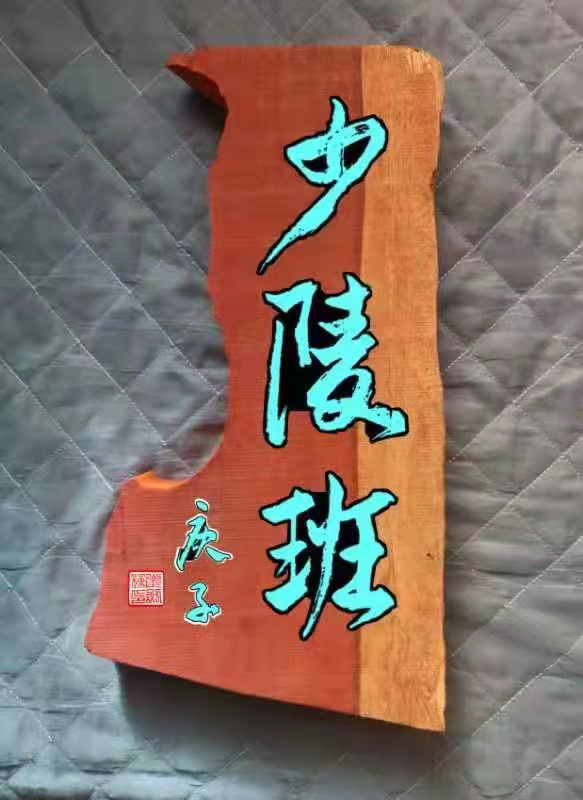 少陵班
庚子